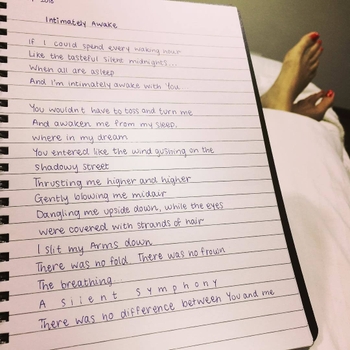 2018
Intimately Awake
If I could spend every waking hour
Like the tasteful silent midnight...
When all are asleep
And I'm intimately awake with You
You wouldn't have to toss and turn me
And awaken me from my sleep,
where in my dream
You entered like the wind gushing on the
Shadowy street
Thrusting me higher and higher
Gently blowing me midair
Dangling me upside down, while the eyes
were covered with strands of hair
I slit my Arms down
There was no fold There was no frown
The breathing
A Silent Symphony
There was no difference between You and me